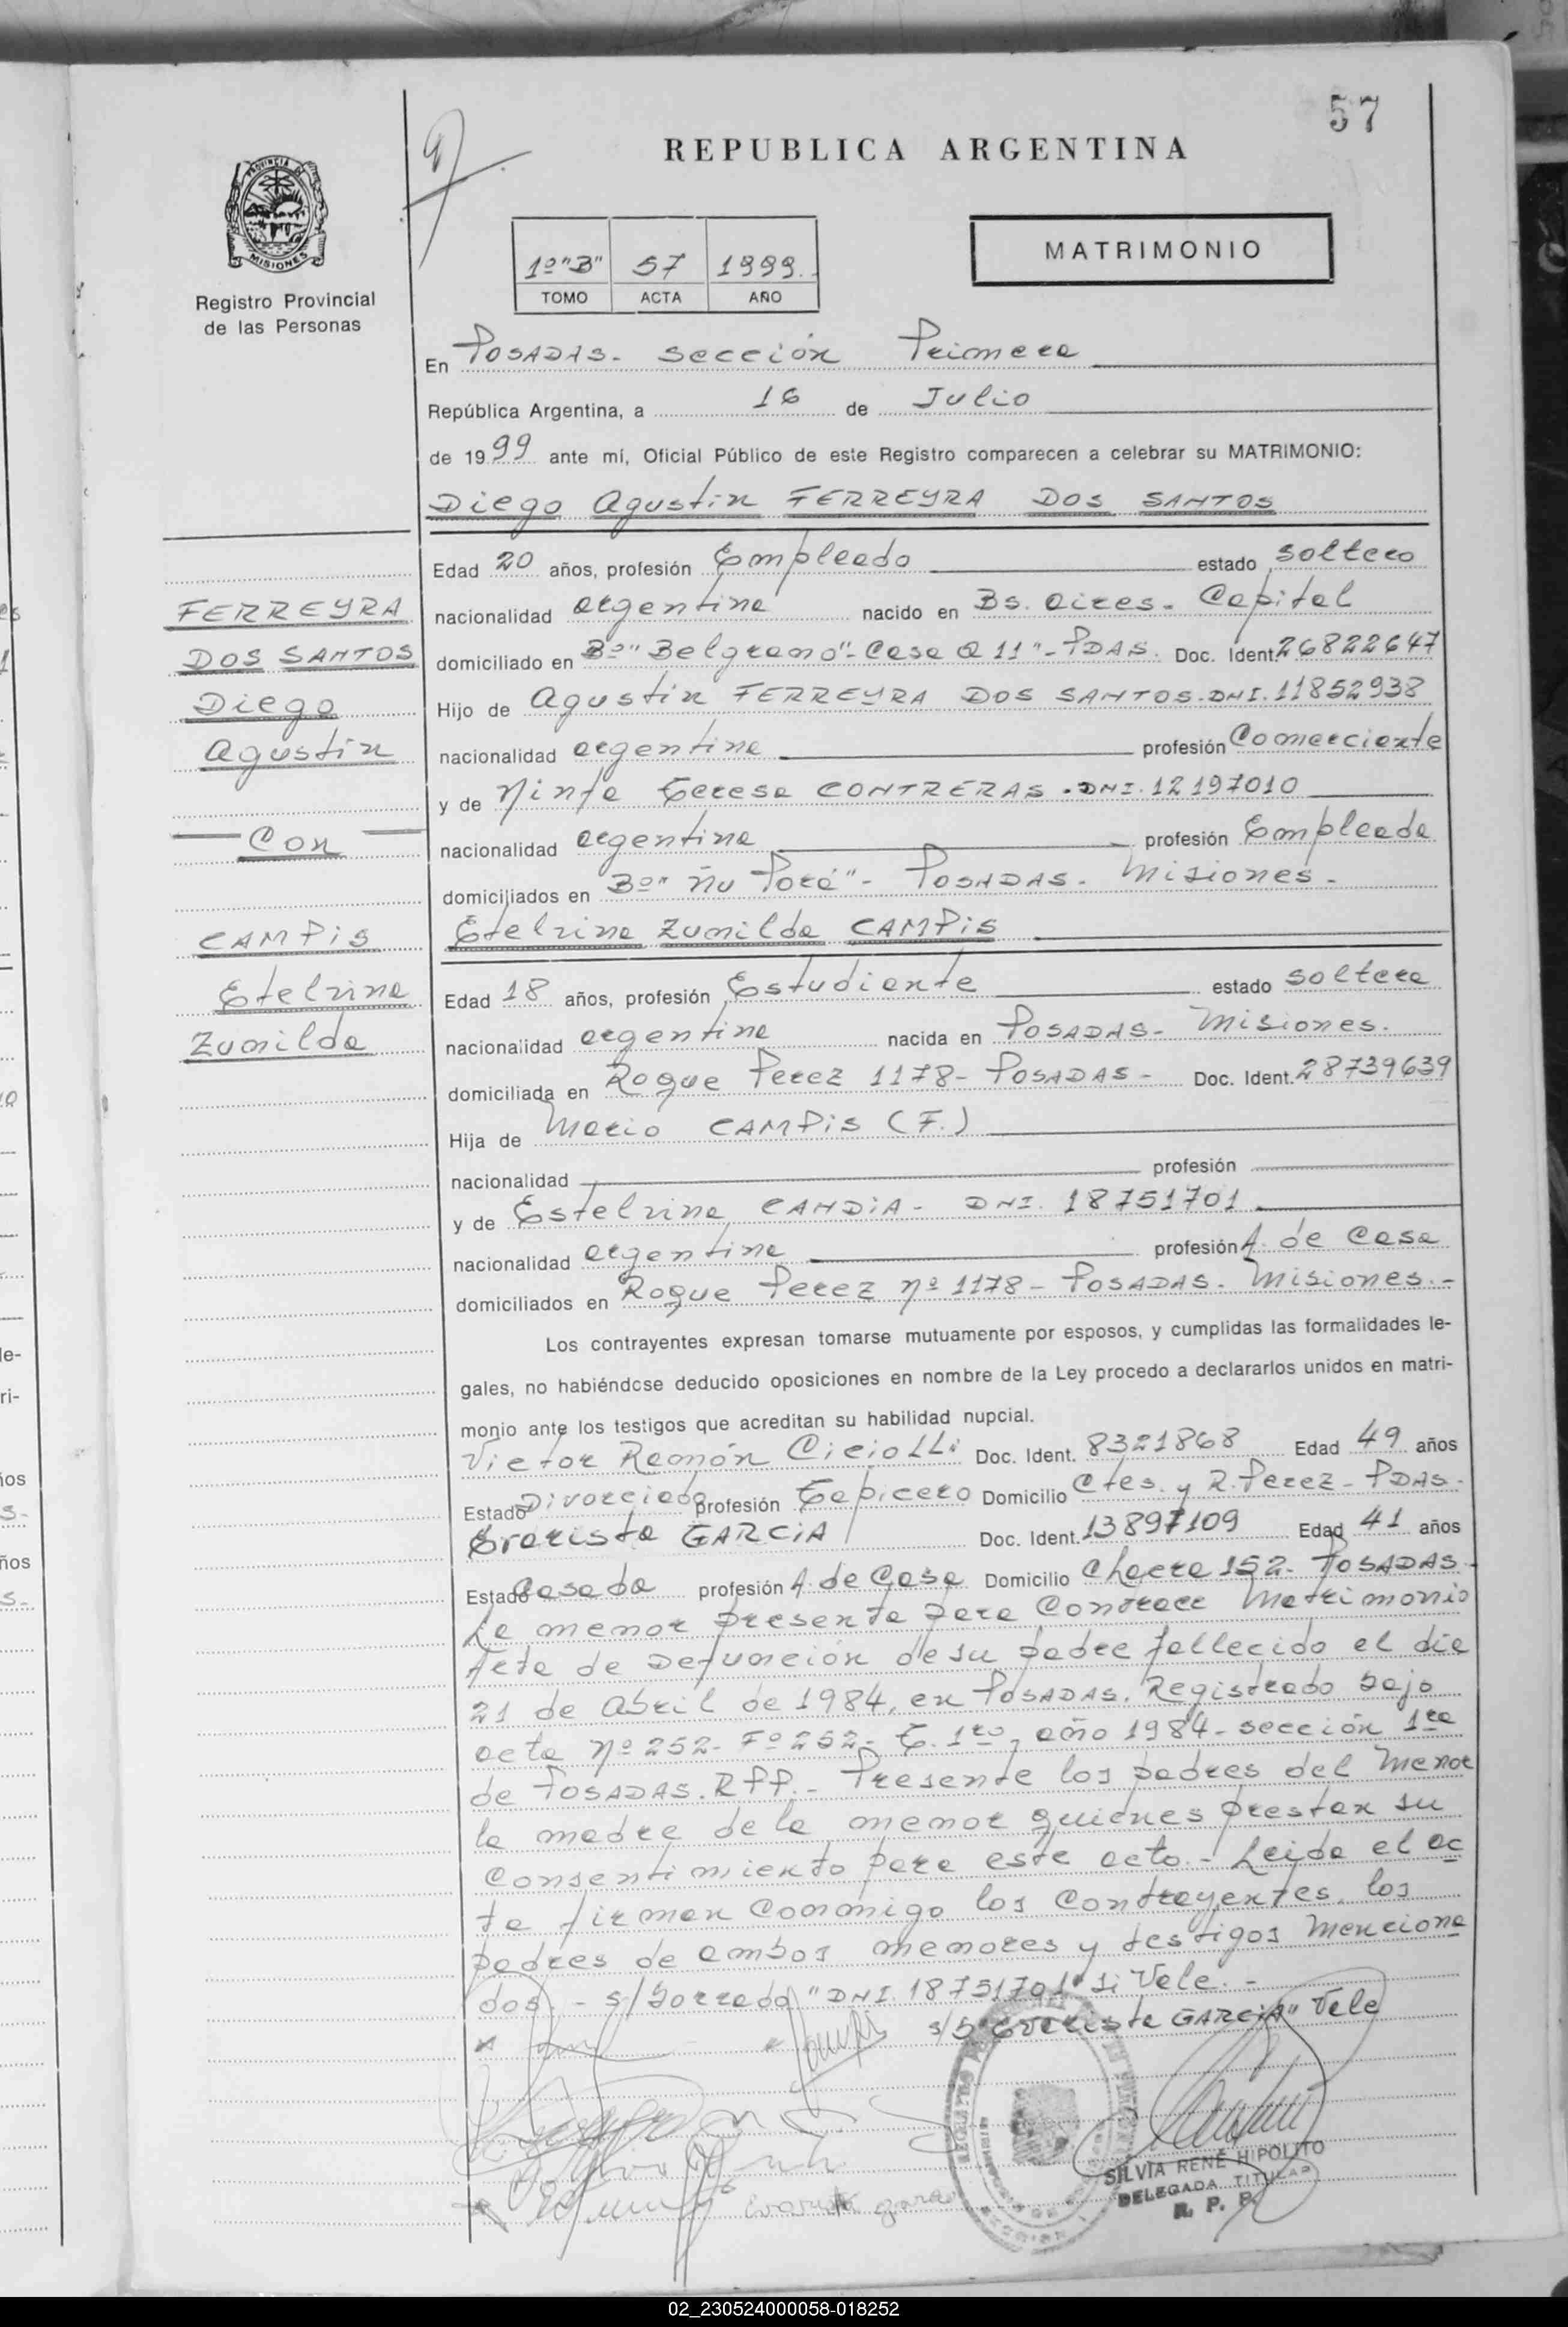 57
REPUBLICA ARGENTINA
PROVINCIA DE
MISIONES
Registro Provincial
de las Personas
1º"B" 57 1999.
TOMO ACTA AÑO
MATRIMONIO
En POSADAS- Sección Primera
República Argentina, a 16 de Julio
de 1999 ante mí, Oficial Público de este Registro comparecen a celebrar su MATRIMONIO:
Diego Agustín FERREYRA DOS SANTOS
Edad 20 años, profesión Empleado estado soltero
FERREYRA
nacionalidad argentina nacido en Bs. Aires- Capital
DOS SANTOS
domiciliado en Bº"Belgrano"-Casa Q 11"-PDAS. Doc. Ident. 26822647
Diego
Hijo de Agustín FERREYRA DOS SANTOS-DNI.11852938
Agustín
nacionalidad argentina profesión Comerciante
y de Ninfa Teresa CONTRERAS.DNI.12197010
Con
nacionalidad argentina profesión Empleada
domiciliados en Bº"Ñu Porá"- POSADAS- Misiones-
CAMPIS
Etelvina Zunilda CAMPIS
Etelvina
Edad 18 años, profesión Estudiante estado soltera
Zunilda
nacionalidad argentina nacida en POSADAS- Misiones.
domiciliada en Roque Perez 1178- POSADAS- Doc. Ident. 28739639
Hija de Mario CAMPIS (F.)
nacionalidad profesión
y de Estelvina CANDIA- DNI. 18751701.
nacionalidad argentina profesión A. de Casa
domiciliados en Roque Perez nº 1178- POSADAS- Misiones.-
Los contrayentes expresan tomarse mutuamente por esposos, y cumplidas las formalidades le-
gales, no habiéndose deducido oposiciones en nombre de la Ley procedo a declararlos unidos en matri-
monio ante los testigos que acreditan su habilidad nupcial.
Victor Ramón CicioLLi Doc. Ident. 8321868 Edad 49 años
Estado Divorciado profesión Tapicero Domicilio Ctes. y R.Perez- PDAS-
Evarista GARCIA Doc. Ident. 13897109 Edad 41 años
Estado Casada profesión A. de Casa Domicilio Chacra 152- POSADAS-
La menor presenta para Contraer Matrimonio
Acta de Defunción de su padre fallecido el día
21 de Abril de 1984, en POSADAS. Registrado bajo
acta Nº 252- Fº 252- T. 1ro, año 1984- sección 1ra
de POSADAS. RPP.- Presente los padres del Menor
la madre de la menor quienes prestan su
Consentimiento para este acto.- Leida el ac
ta firman Conmigo los Contrayentes, los
padres de ambos menores y testigos Menciona
dos.- s/borrado "DNI.18751701" si Vale.-
s/b "Evarista GARCIA" Vale
SILVIA RENÉ HIPOLITO
DELEGADA TITULAR
R. P. P.
02_230524000058-018252